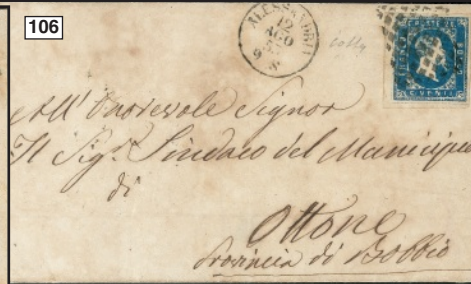 106
ALESSANDRIA
12
AGO
All' Onorevole Signor
Il Sig.r Sindaco del Municipio
di
Ottone
Provincia di Bobbio